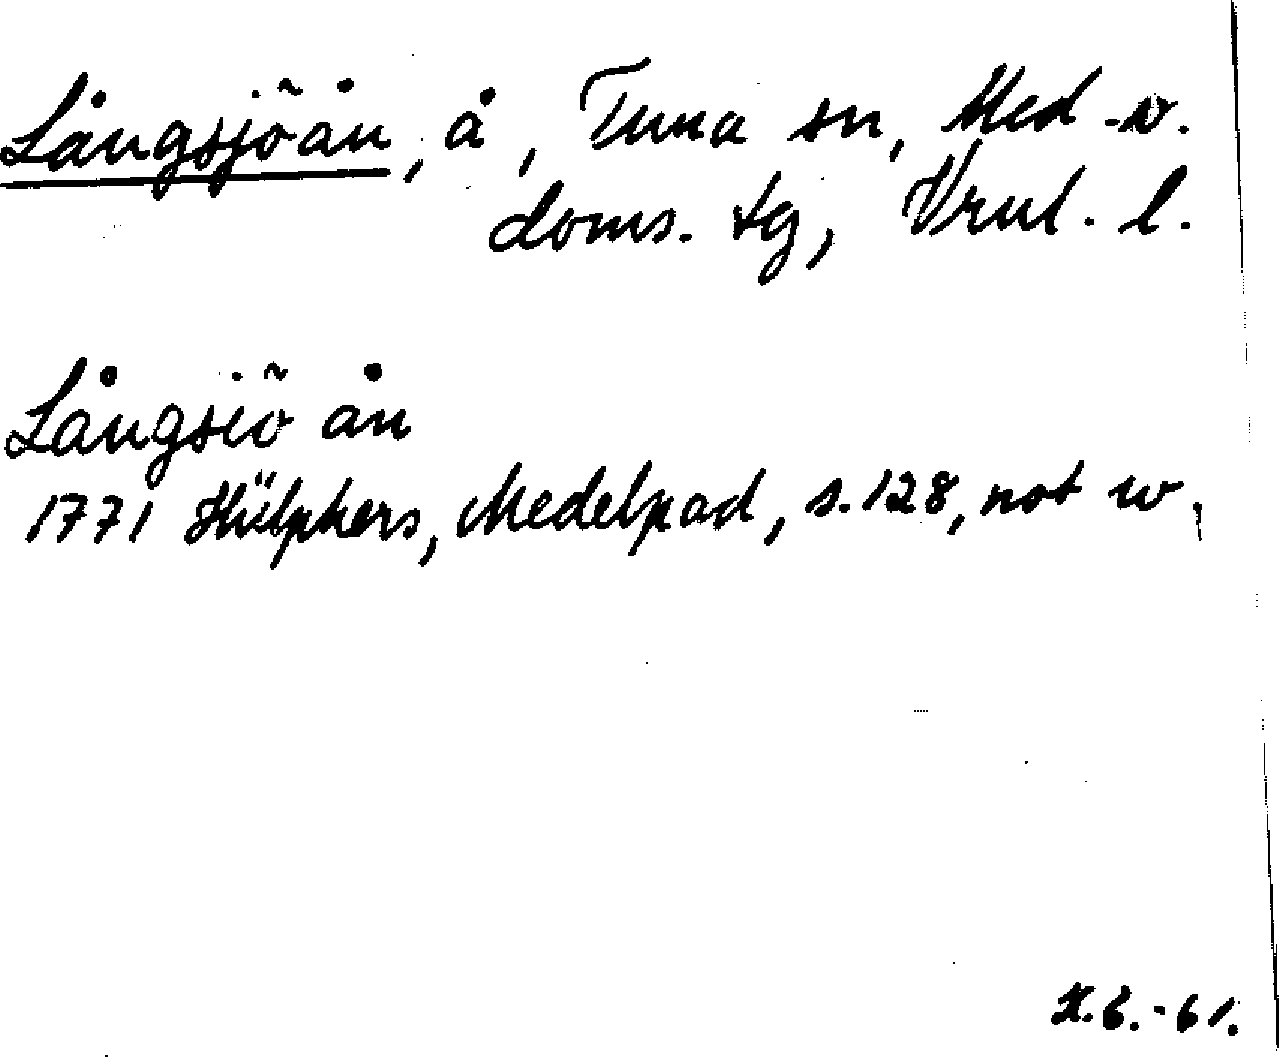 Långsjöån, å, Tuna sn, Med-v.
doms. tg, Vrnl. l.
Långsiö ån
1771 Hülphers, Medelpad, s. 128, not w,